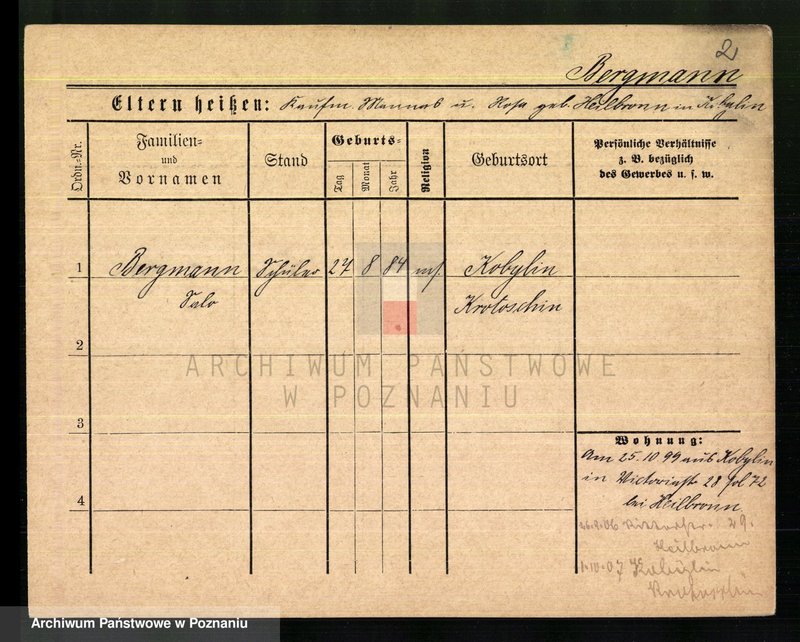 2
Bergmann
Eltern heißen: Kaufm. Mannas u. Rosa geb. Heilbronn in Kobylin
Ordn.-Nr.
Familien-
und
Vornamen
Stand
Geburts-
Tag
Monat
Jahr
Religion
Geburtsort
Persönliche Verhältnisse
z. B. bezüglich
des Gewerbes u. s. w.
1 Bergmann Schüler 27 8 84 mos. Kobylin
Salo Krotoschin
2
ARCHIWUM PAŃSTWOWE
W POZNANIU
3
Wohnung:
Am 25.10 99 aus Kobylin
in Victoriastr 28
4
bei Heilbronn
29.
Heilbronn
1.10.07 Kobylin
Krotoschin
Archiwum Państwowe w Poznaniu